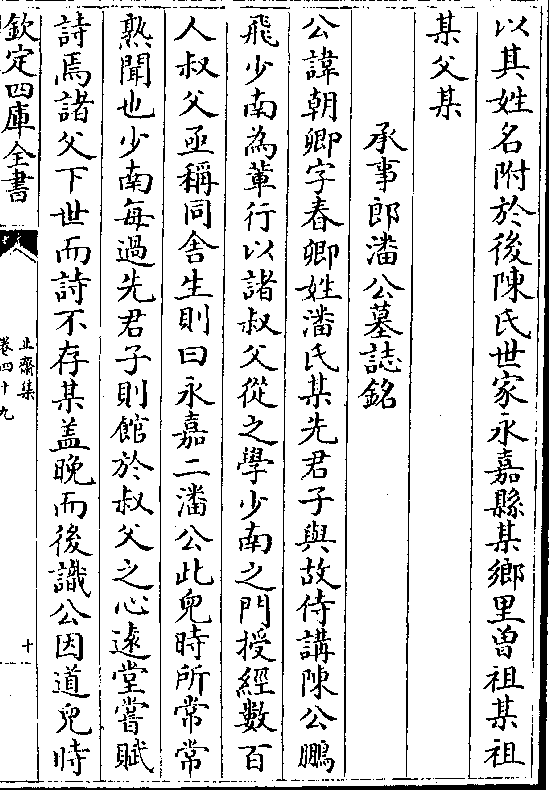 以其姓名附於後陳氏世家永嘉縣某鄉里曽祖某祖
某父某
承事郎潘公墓誌銘
公諱朝卿字春卿姓潘氏某先君子與故侍講陳公鵬
飛少南為輩行以諸叔父從之學少南之門授經數百
人叔父亟稱同舍生則曰永嘉二潘公此兒時所常常
熟聞也少南每過先君子則館於叔父之心逺堂嘗賦
詩焉諸父下世而詩不存某盖晚而後識公因道兒時
欽定四庫全書
止齋集
卷四十九
十